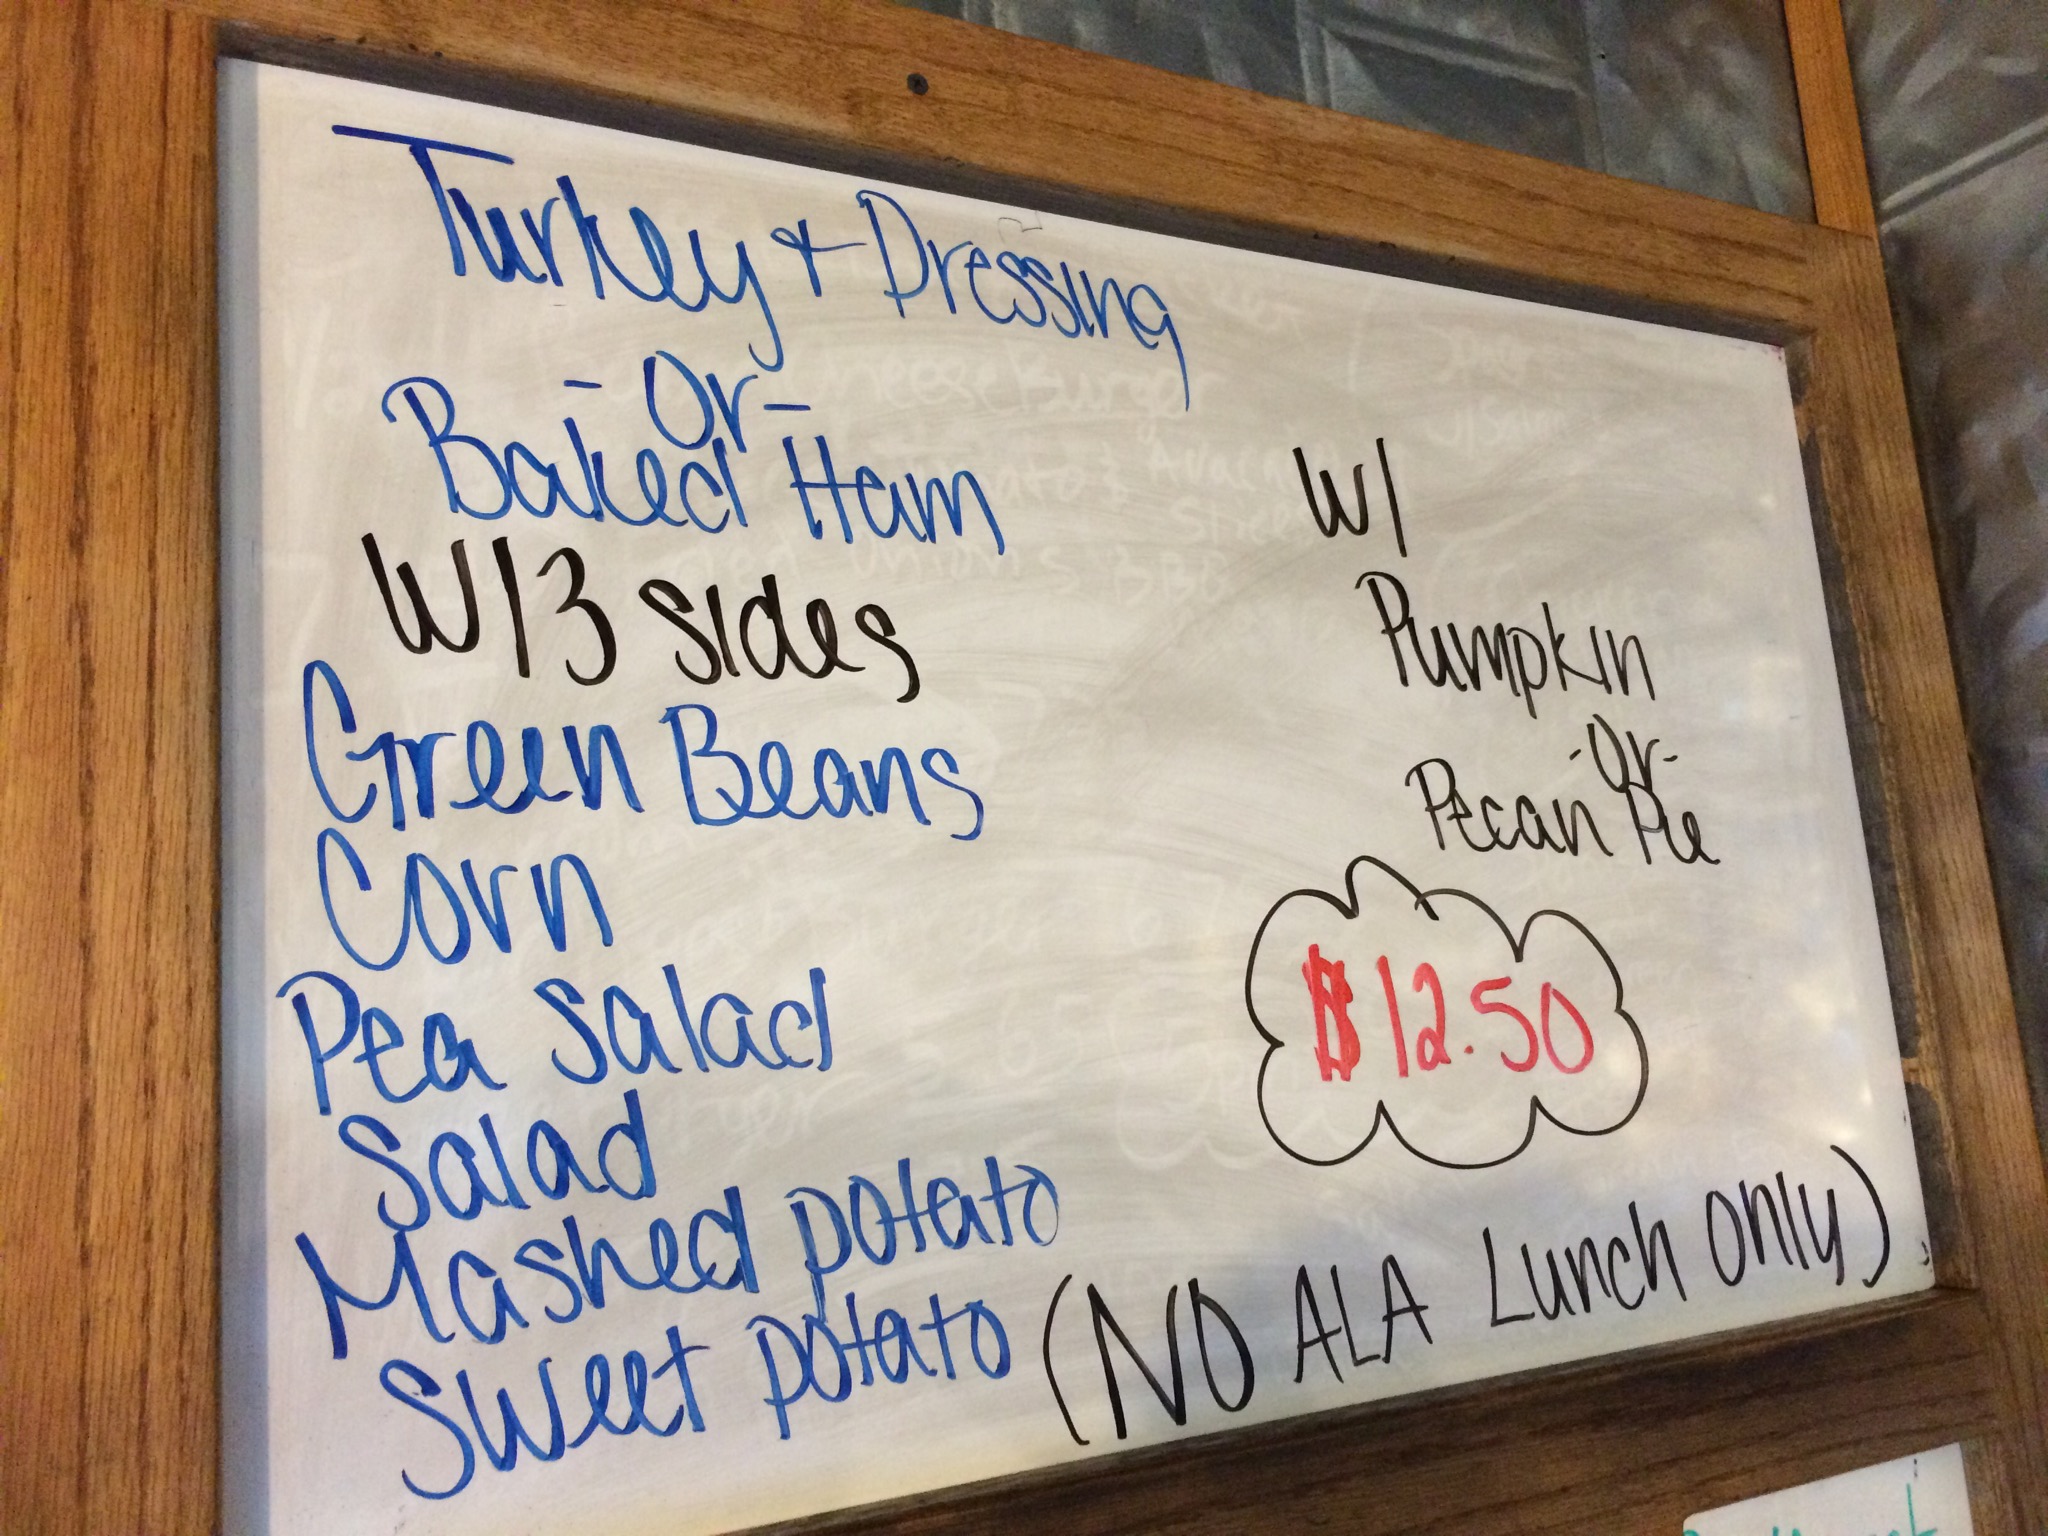 Turkey + Dressing
-Or-
Baked Ham
W/3 sides
Green Beans
Corn
Pea Salad
Salad
Mashed potato
Sweet potato
W/
Pumpkin
-Or-
Pecan Pie
$12.50
(NO ALA Lunch only)